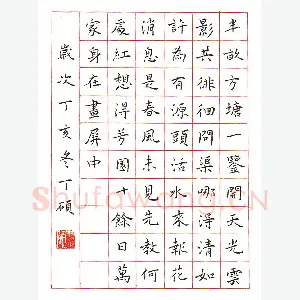 半畝方塘一鑒開天光雲
影共徘徊問渠哪得清如
許為有源頭活水來報花
消息是春風未見先教何
處紅想得芳園十餘日萬
家身在畫屏中
歲次丁亥冬丁碩
Shufawang.CN